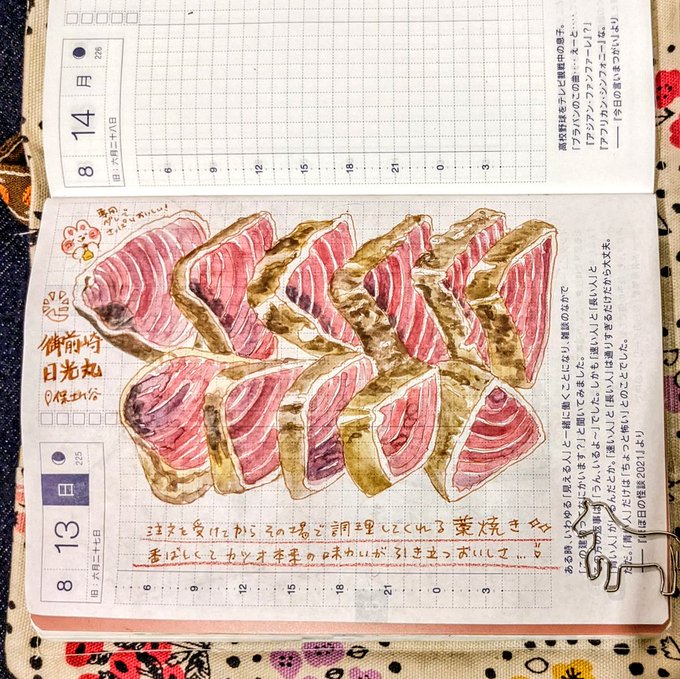 8
14
月
226
旧:六月二十八日
6 9 12 15 18 21 0 3
高校野球をテレビ観戦中の息子。
「ブラバンのこの曲・・・えーと・・・・
『アジアン・ファンファーレ』?」
『アフリカン・シンフォニー』な。
——『今日の言いまつがい』より
おいしい!
御前崎
日光丸
@保土ヶ谷
8
13
日
225
旧:六月二十七日
注文を受けてからその場で調理してくれる藁焼き
香ばしくてカツオ本来の味わいが引き立つおいしさ…
6 9 12 15 18 21 0 3
ある時、いわゆる「見える人」と一緒に働くことになり、雑談のなかで
「この建 にかいます?」と聞いてみました。
方の返事は「うん、いるよ〜」でした。しかも「速い人」と「長い人」と
「青い人」がいるんだとか。「速い人」と「長い人」は通りすぎるだけだから大丈夫。
ただ。「青 」だけは「ちょっと怖い」とのことでした。
——『ほぼ日の怪談2021』より